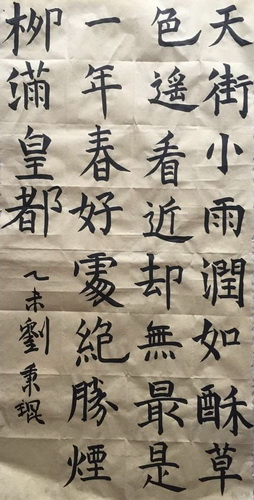 天街小雨潤如酥草
色遥看近却無最是
一年春好處絶勝煙
柳滿皇都
乙未劉秉琨